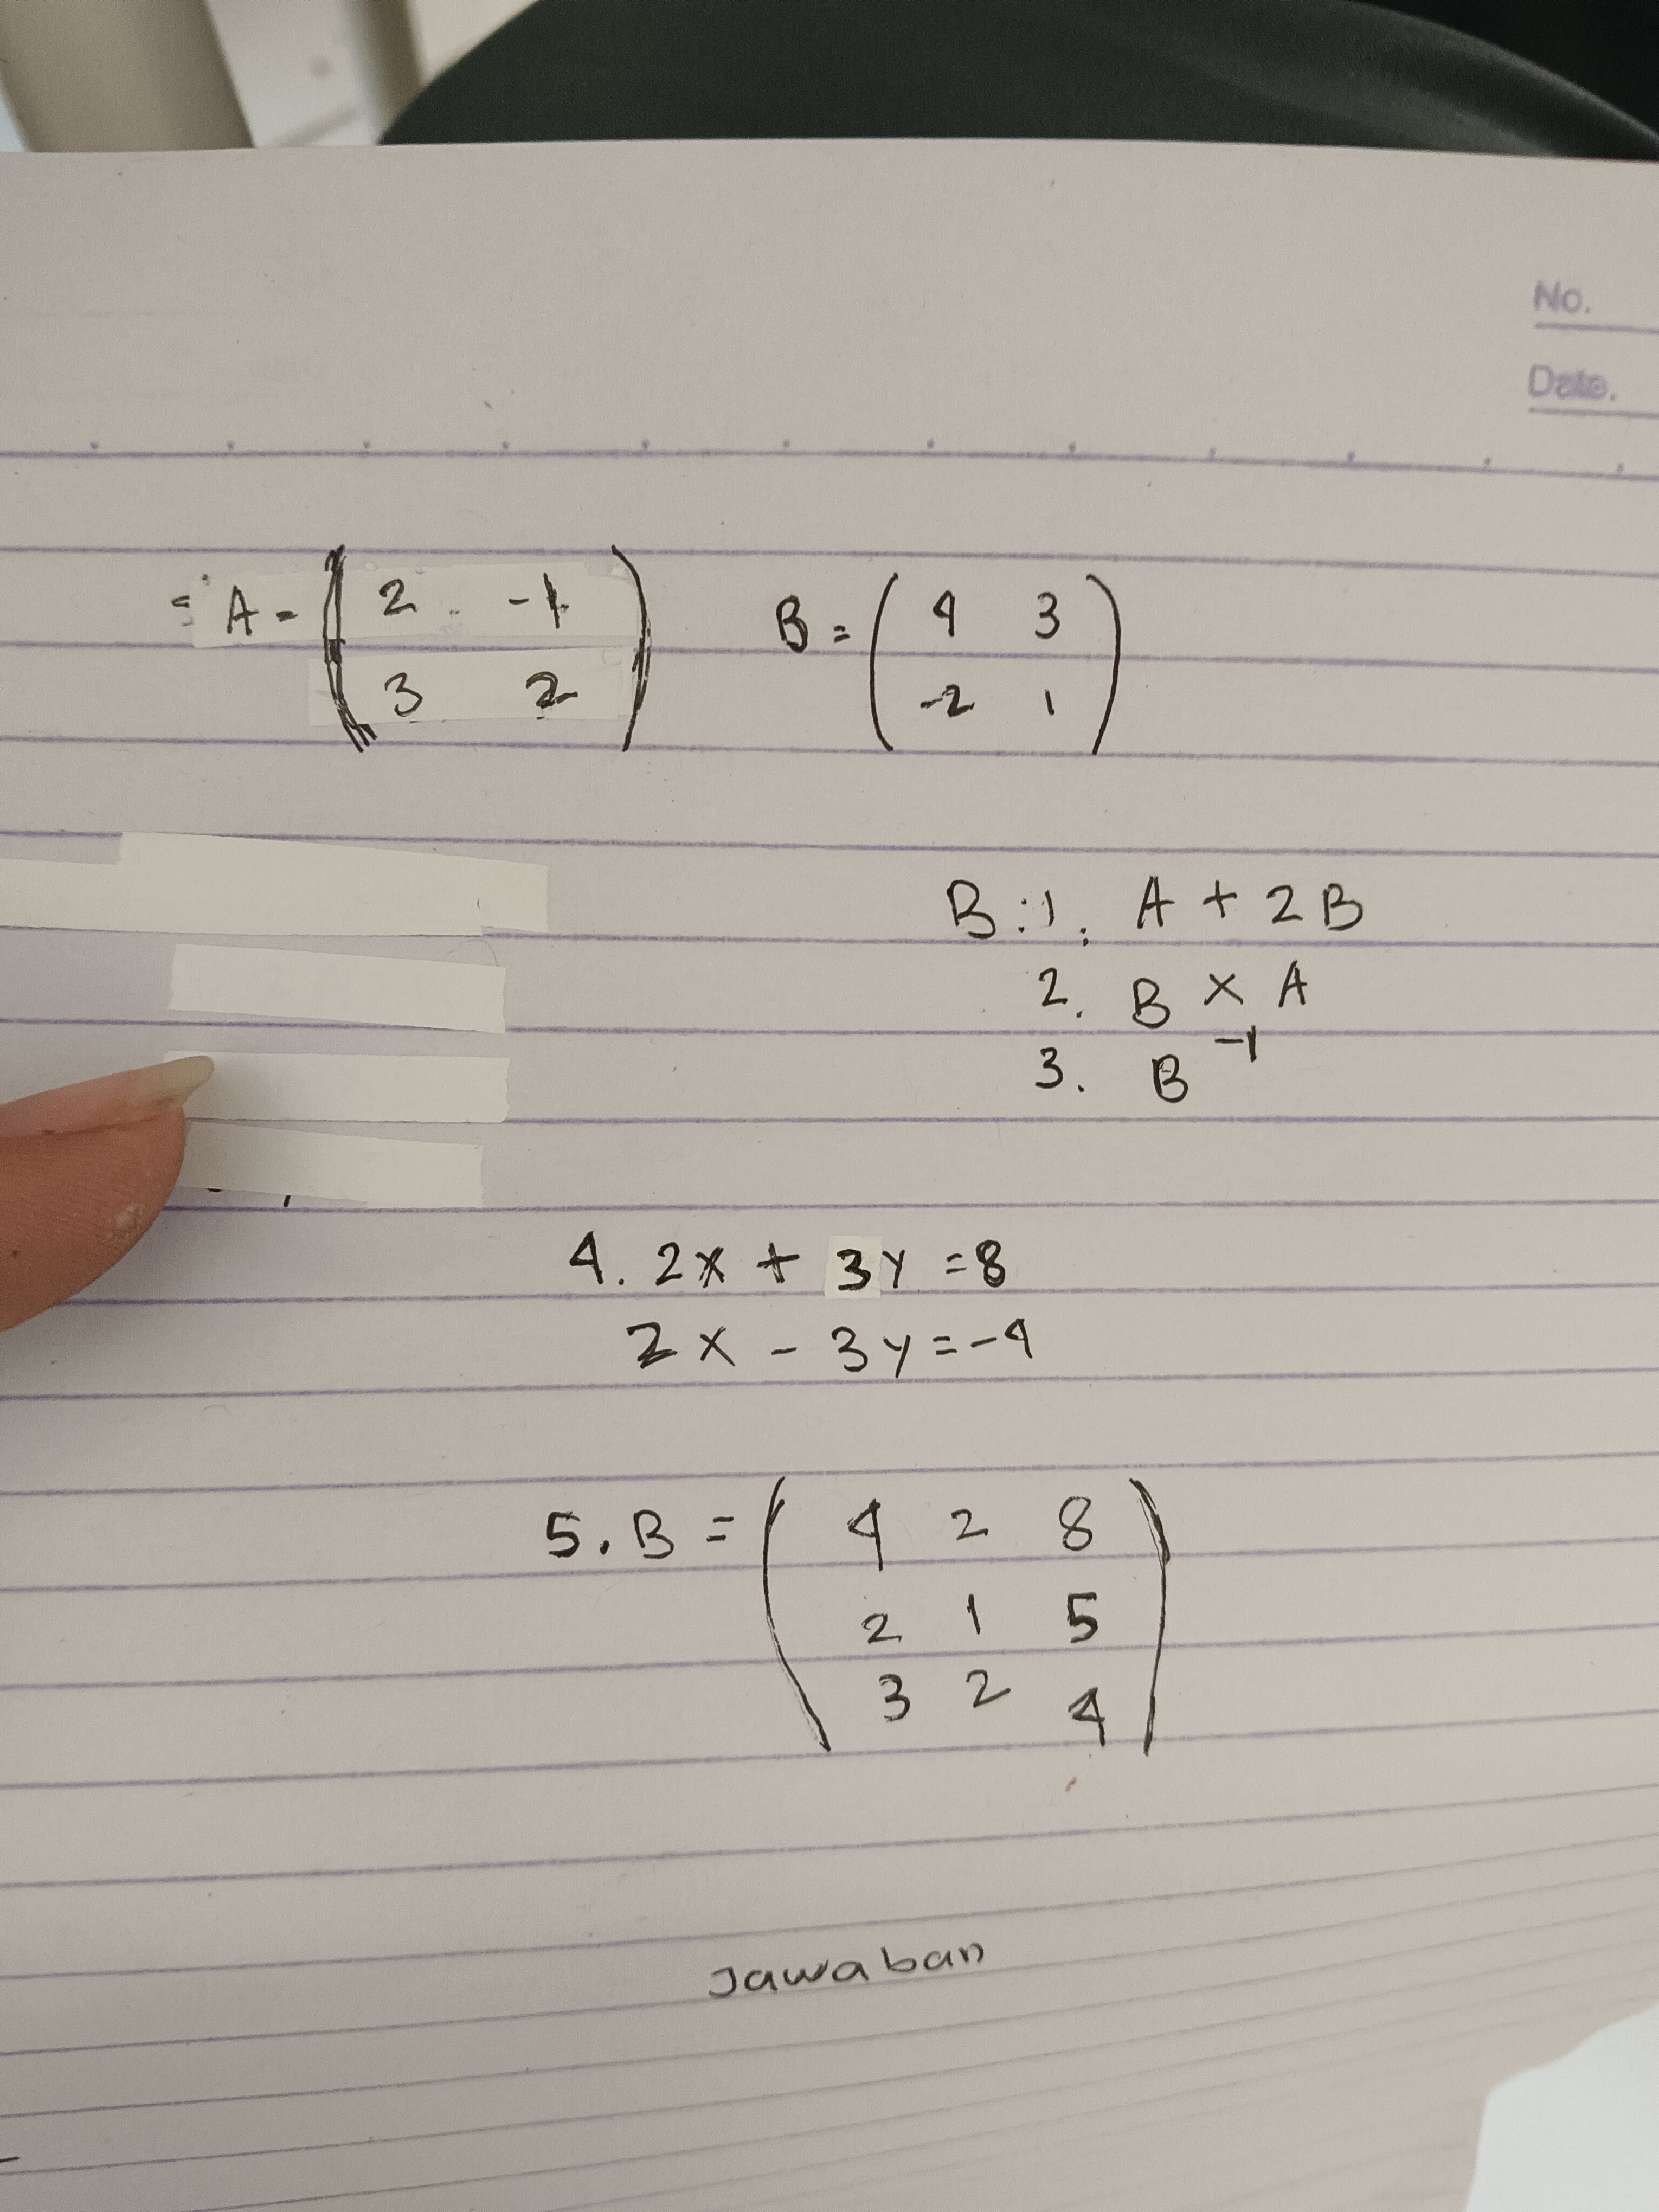 No.
Date.
A = ( 2 -1 ) B = ( 4 3 )
( 3 2 ) ( -2 1 )
B : 1. A + 2B
2. B × A
3. B⁻¹
4. 2x + 3y = 8
2x - 3y = -4
5. B = ( 4 2 8 )
( 2 1 5 )
( 3 2 4 )
Jawaban